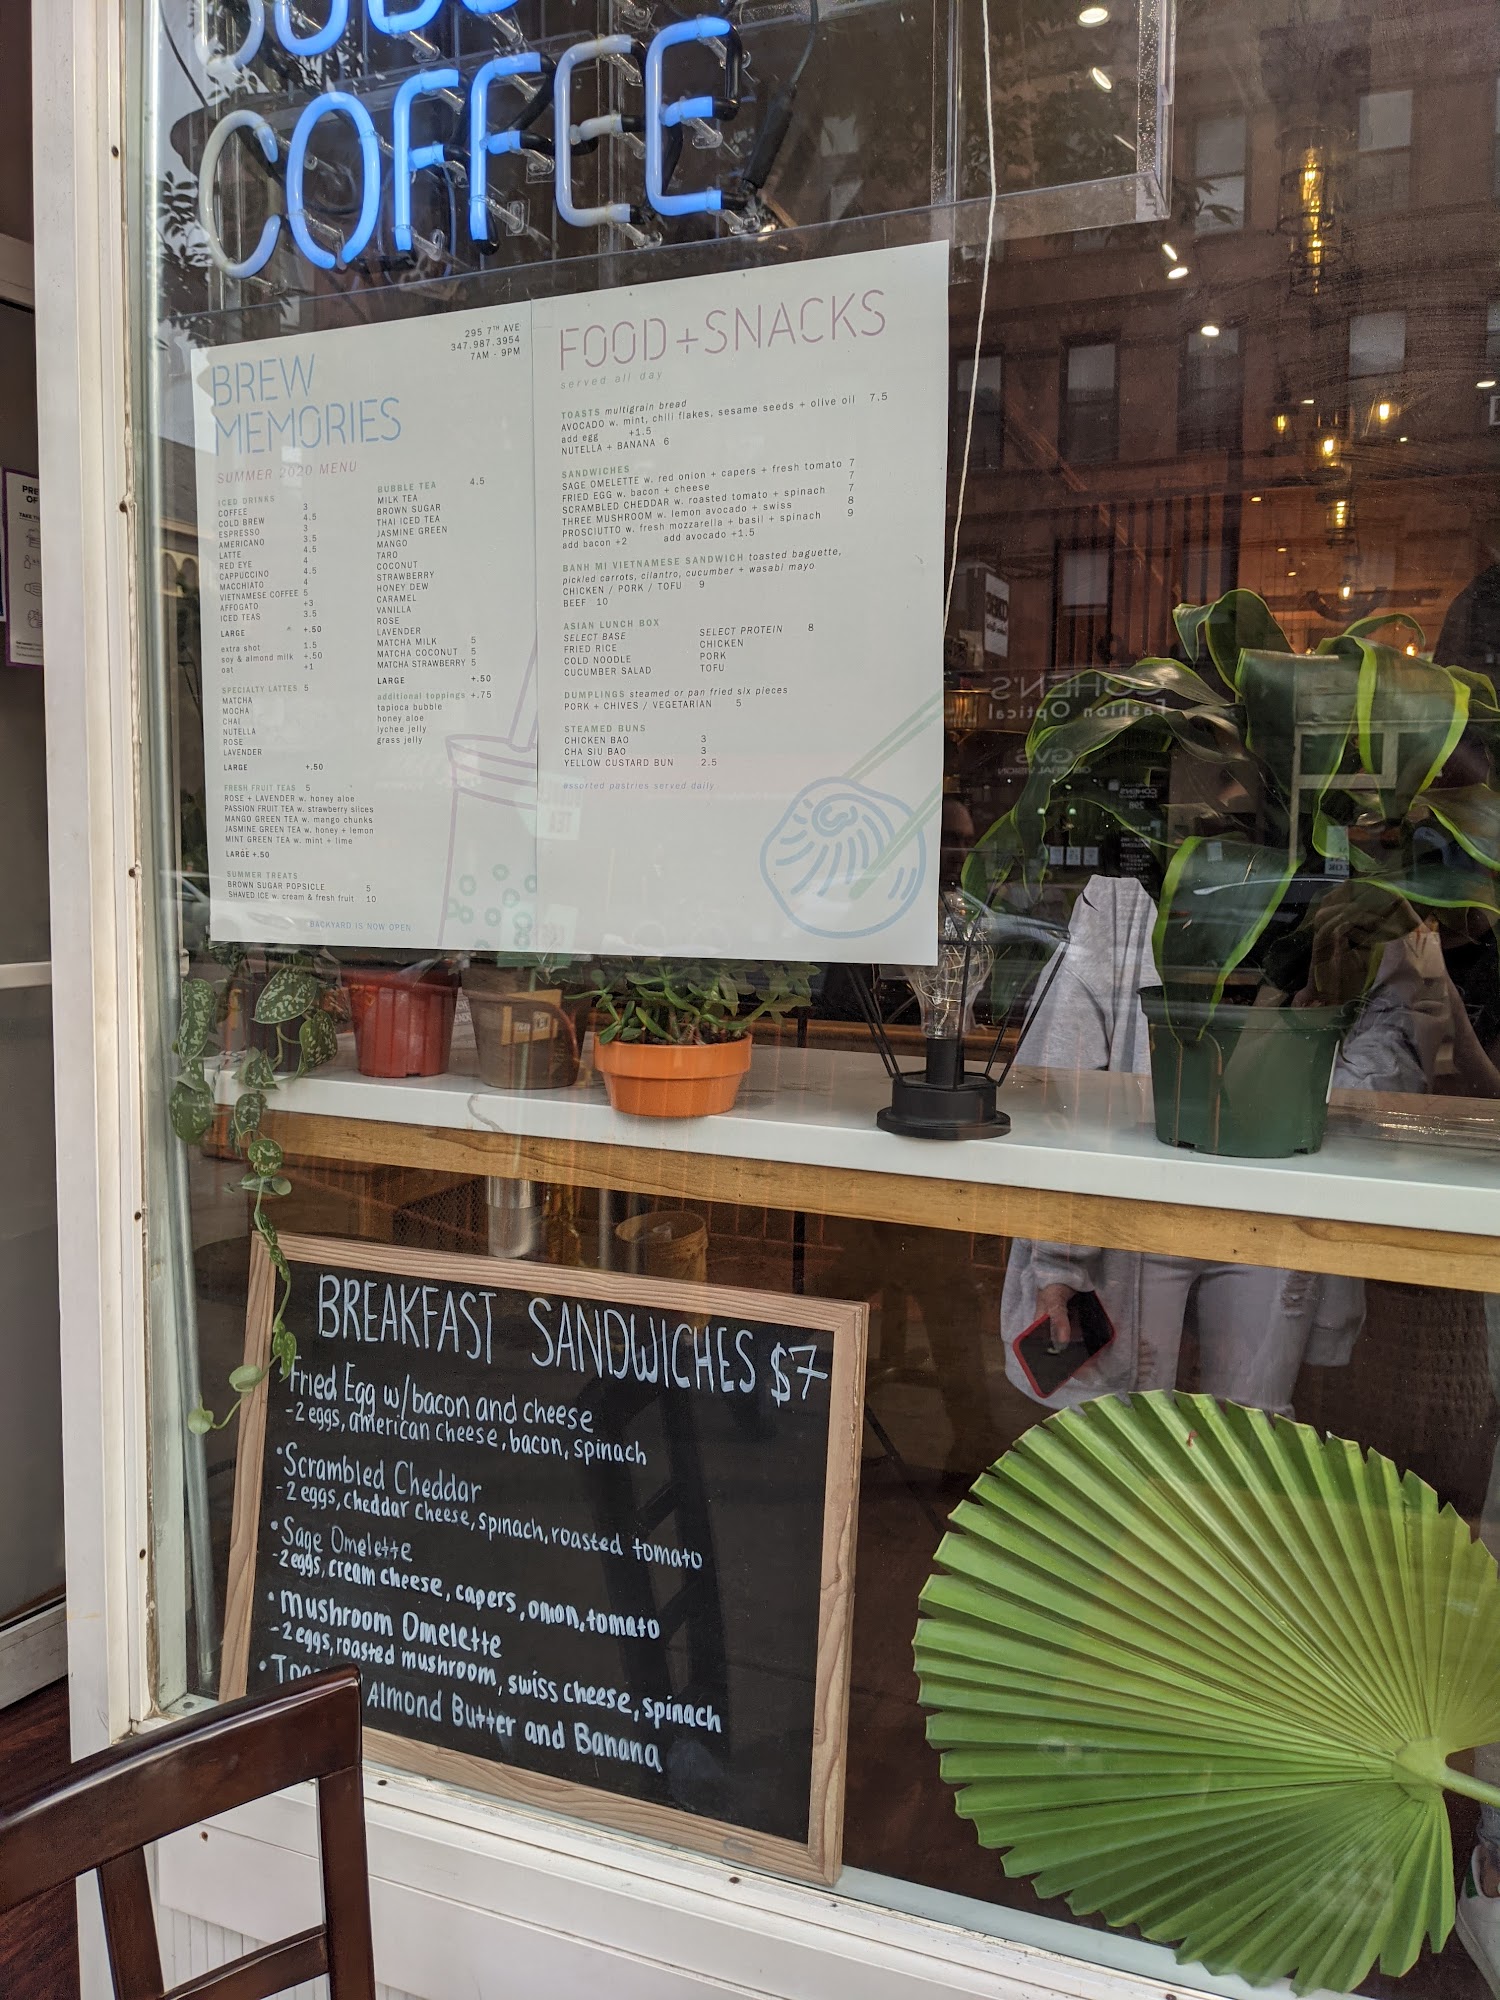 COFFEE
295 7TH AVE
347.987.3954
7AM - 9PM
BREW
MEMORIES
SUMMER 2020 MENU
ICED DRINKS
COFFEE 3
COLD BREW 4.5
ESPRESSO 3
AMERICANO 3.5
LATTE 4.5
RED EYE 4
CAPPUCCINO 4.5
MACCHIATO 4
VIETNAMESE COFFEE 5
AFFOGATO +3
ICED TEAS 3.5
LARGE +.50
extra shot 1.5
soy & almond milk +.50
oat +1
SPECIALTY LATTES 5
MATCHA
MOCHA
CHAI
NUTELLA
ROSE
LAVENDER
LARGE +.50
FRESH FRUIT TEAS 5
ROSE + LAVENDER w. honey aloe
PASSION FRUIT TEA w. strawberry slices
MANGO GREEN TEA w. mango chunks
JASMINE GREEN TEA w. honey + lemon
MINT GREEN TEA w. mint + lime
LARGE +.50
SUMMER TREATS
BROWN SUGAR POPSICLE 5
SHAVED ICE w. cream & fresh fruit 10
BACKYARD IS NOW OPEN
BUBBLE TEA 4.5
MILK TEA
BROWN SUGAR
THAI ICED TEA
JASMINE GREEN
MANGO
TARO
COCONUT
STRAWBERRY
HONEY DEW
CARAMEL
VANILLA
ROSE
LAVENDER
MATCHA MILK 5
MATCHA COCONUT 5
MATCHA STRAWBERRY 5
LARGE +.50
additional toppings +.75
tapioca bubble
honey aloe
lychee jelly
grass jelly
FOOD+SNACKS
served all day
TOASTS multigrain bread
AVOCADO w. mint, chili flakes, sesame seeds + olive oil 7.5
add egg +1.5
NUTELLA + BANANA 6
SANDWICHES
SAGE OMELETTE w. red onion + capers + fresh tomato 7
FRIED EGG w. bacon + cheese 7
SCRAMBLED CHEDDAR w. roasted tomato + spinach 7
THREE MUSHROOM w. lemon avocado + swiss 8
PROSCIUTTO w. fresh mozzarella + basil + spinach 9
add bacon +2 add avocado +1.5
BANH MI VIETNAMESE SANDWICH toasted baguette,
pickled carrots, cilantro, cucumber + wasabi mayo
CHICKEN / PORK / TOFU 9
BEEF 10
ASIAN LUNCH BOX
SELECT BASE SELECT PROTEIN 8
FRIED RICE CHICKEN
COLD NOODLE PORK
CUCUMBER SALAD TOFU
DUMPLINGS steamed or pan fried six pieces
PORK + CHIVES / VEGETARIAN 5
STEAMED BUNS
CHICKEN BAO 3
CHA SIU BAO 3
YELLOW CUSTARD BUN 2.5
assorted pastries served daily
COHEN'S
Fashion Optical
BREAKFAST SANDWICHES $7
•Fried Egg w/bacon and cheese
-2 eggs, american cheese, bacon, spinach
•Scrambled Cheddar
-2 eggs, cheddar cheese, spinach, roasted tomato
•Sage Omelette
-2 eggs, cream cheese, capers, onion, tomato
•Mushroom Omelette
-2 eggs, roasted mushroom, swiss cheese, spinach
• Almond Butter and Banana